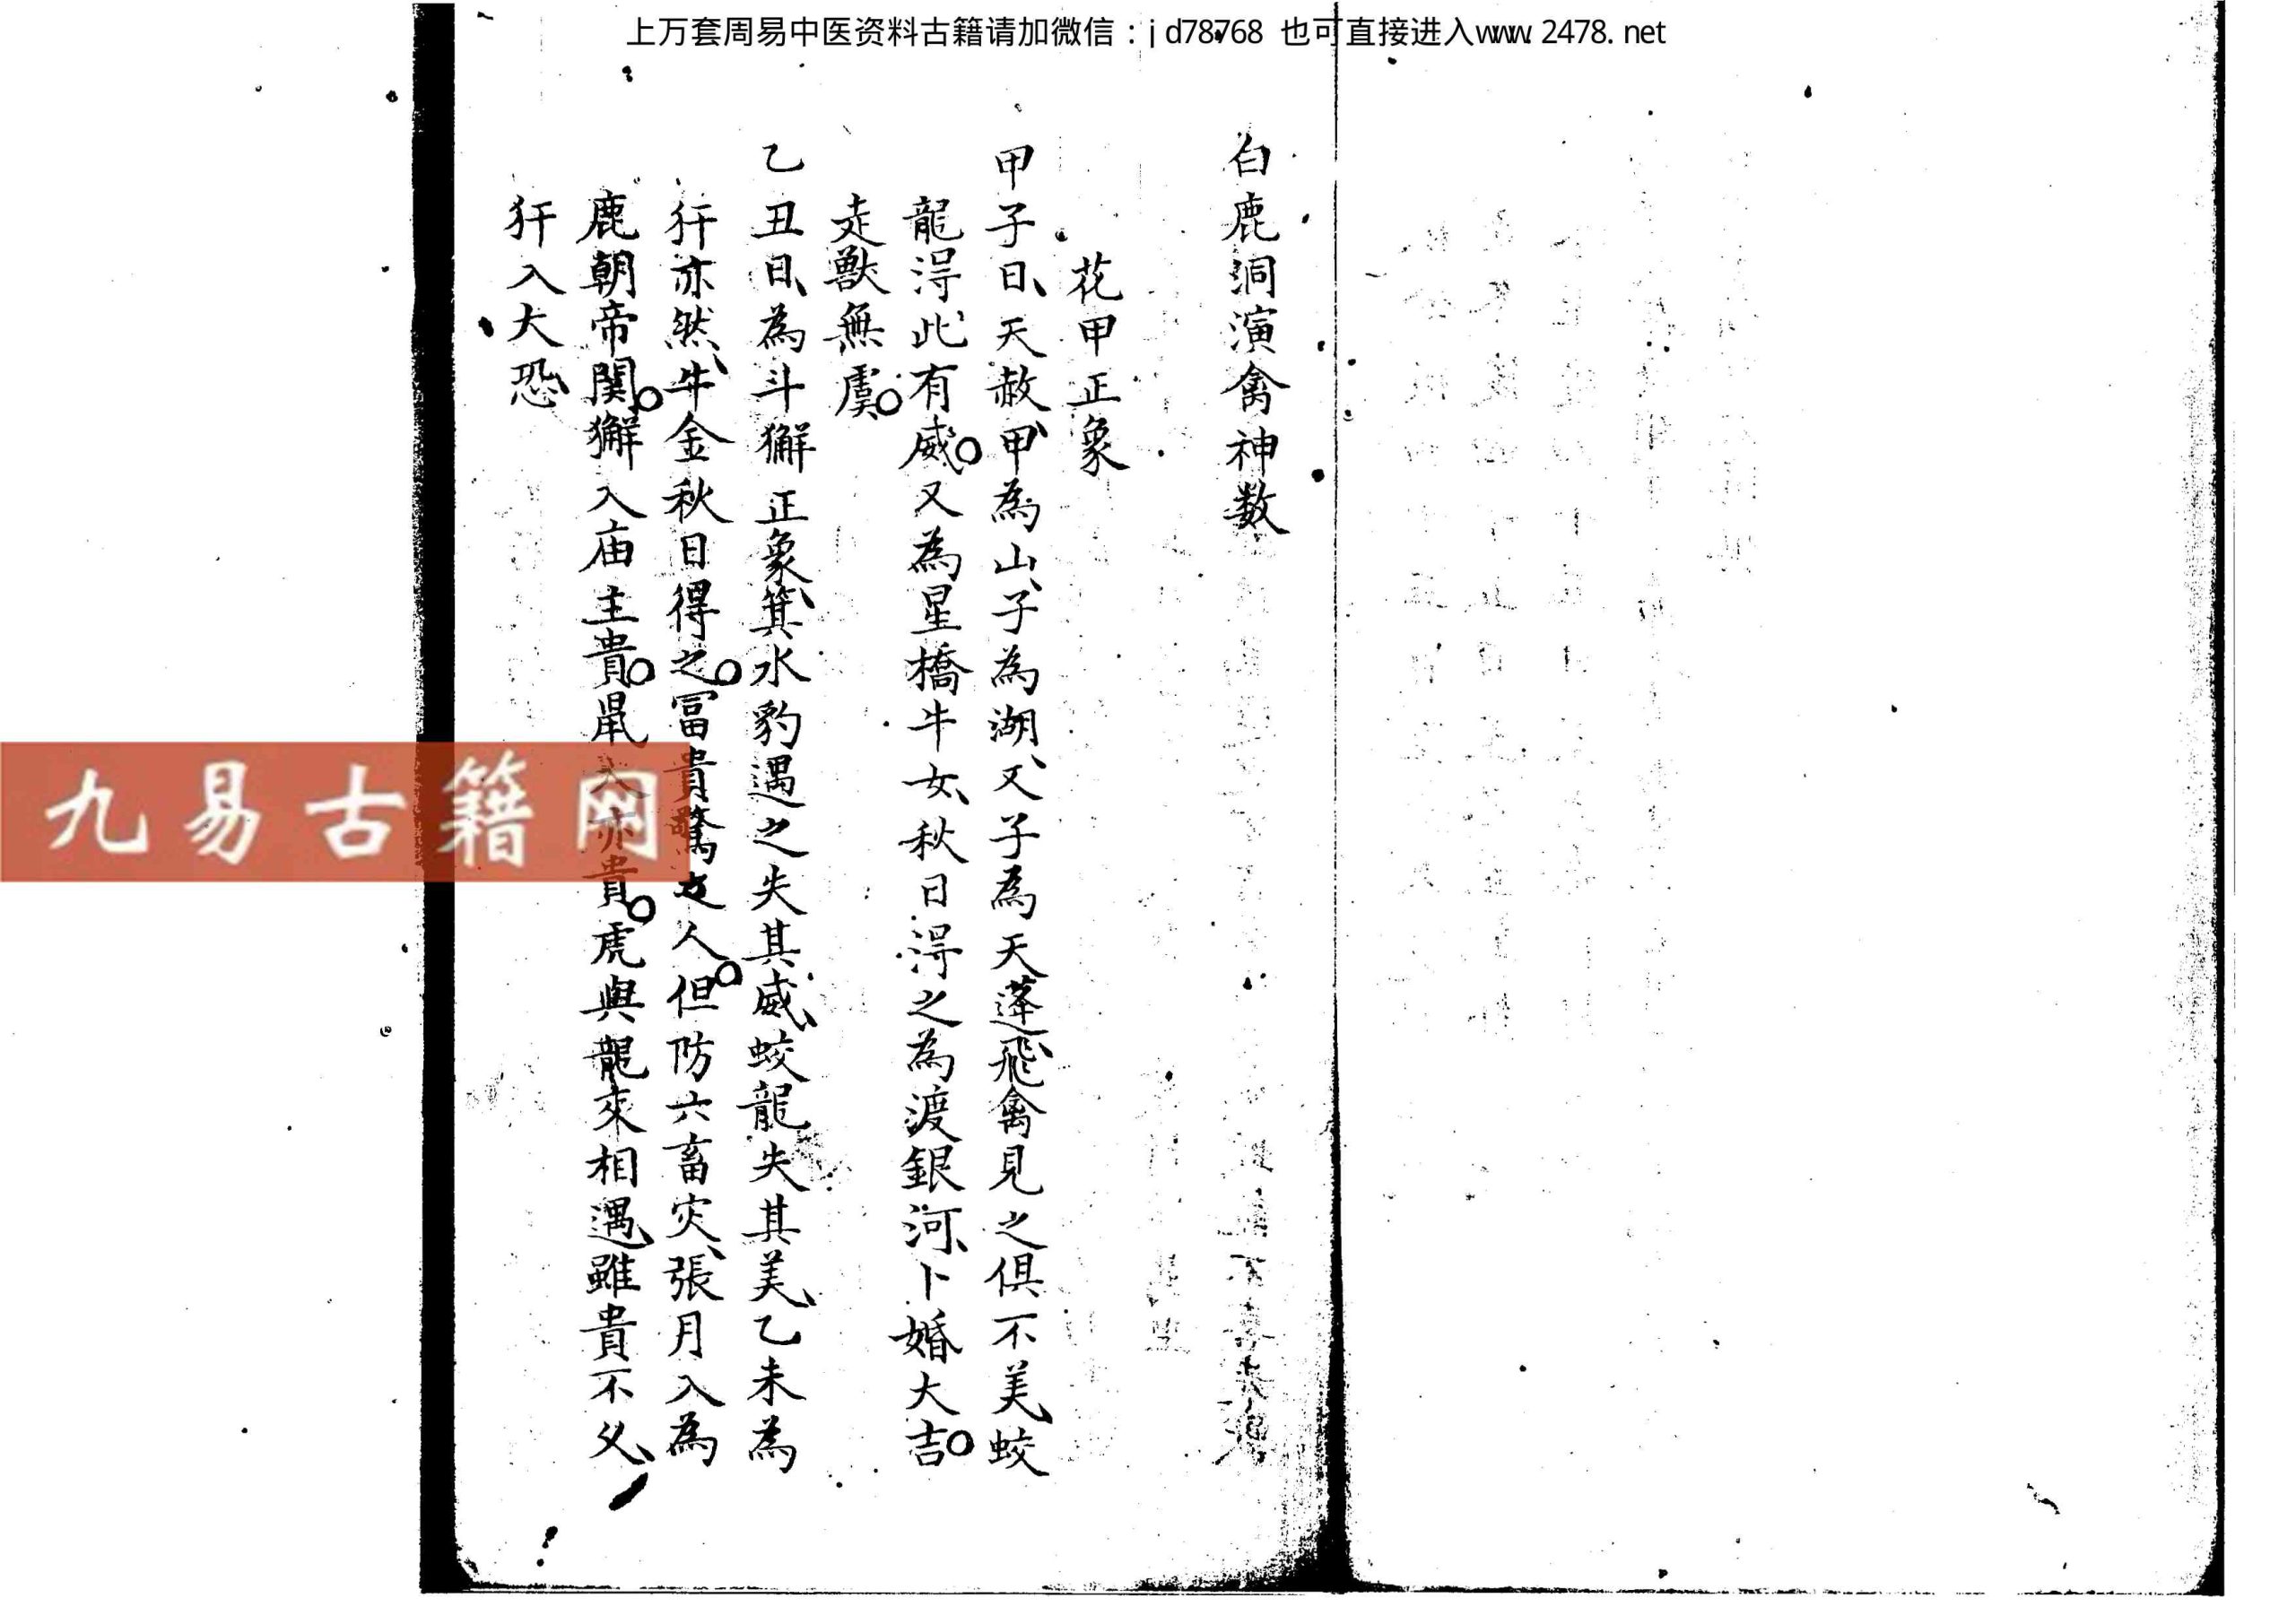 上万套周易中医资料古籍请加微信：jd78768 也可直接进入www.2478.net
白鹿洞演禽神数
花甲正象
甲子日、天赦、甲為山、子為湖、又子為天蓬、飛禽見之俱不美、蛟
龍淂此、有威。又為星橋牛女、秋日淂之為渡銀河、卜婚大吉。
走獸無虞。
乙丑日、為斗獬正象、箕水豹遇之失其威、蛟龍失其美、乙未為
犴亦然、牛金秋日得之。冨貴驚人。但防六畜灾、張月入為
鹿朝帝闕。獬入庙主貴。鼠入亦貴。虎與龍來相遇、雖貴不久、
犴入大恐、
九易古籍网